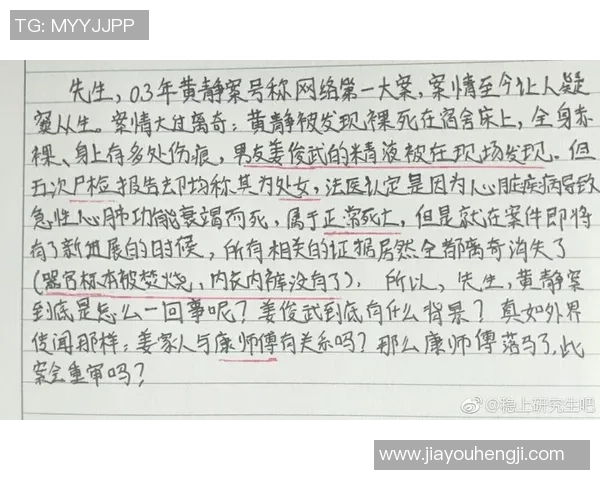 TG: MYYJJPP
先生，03年黄静案号称网络第一大案，案情至今让人疑
窦从生。案情太过离奇：黄静被发现裸死在宿舍床上，全身赤
裸、身上有多处伤痕，男友姜俊武的精液被在现场发现。但
五次尸检报告却均称其为处女，法医认定是因为心脏疾病导致
急性心肺功能衰竭而死，属于正常死亡，但是就在案件即将
有了新进展的时候，所有相关的证据居然全都离奇消失了
（器官标本被焚烧，内衣内裤没有了）。所以，先生，黄静案
到底是怎么一回事呢？姜俊武到底有什么背景？真如外界
传闻那样：姜家人与康师傅有关系吗？那么康师傅落马了，此
案会重审吗？
@稳上研究生吧
www.jiayouhengji.com